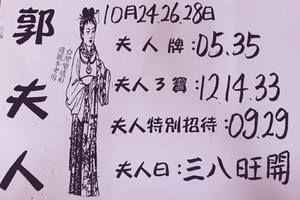 郭夫人
10月24.26.28日
夫人牌:05.35
夫人3寶:12.14.33
夫人特別招待:09.29
夫人曰:三八旺開